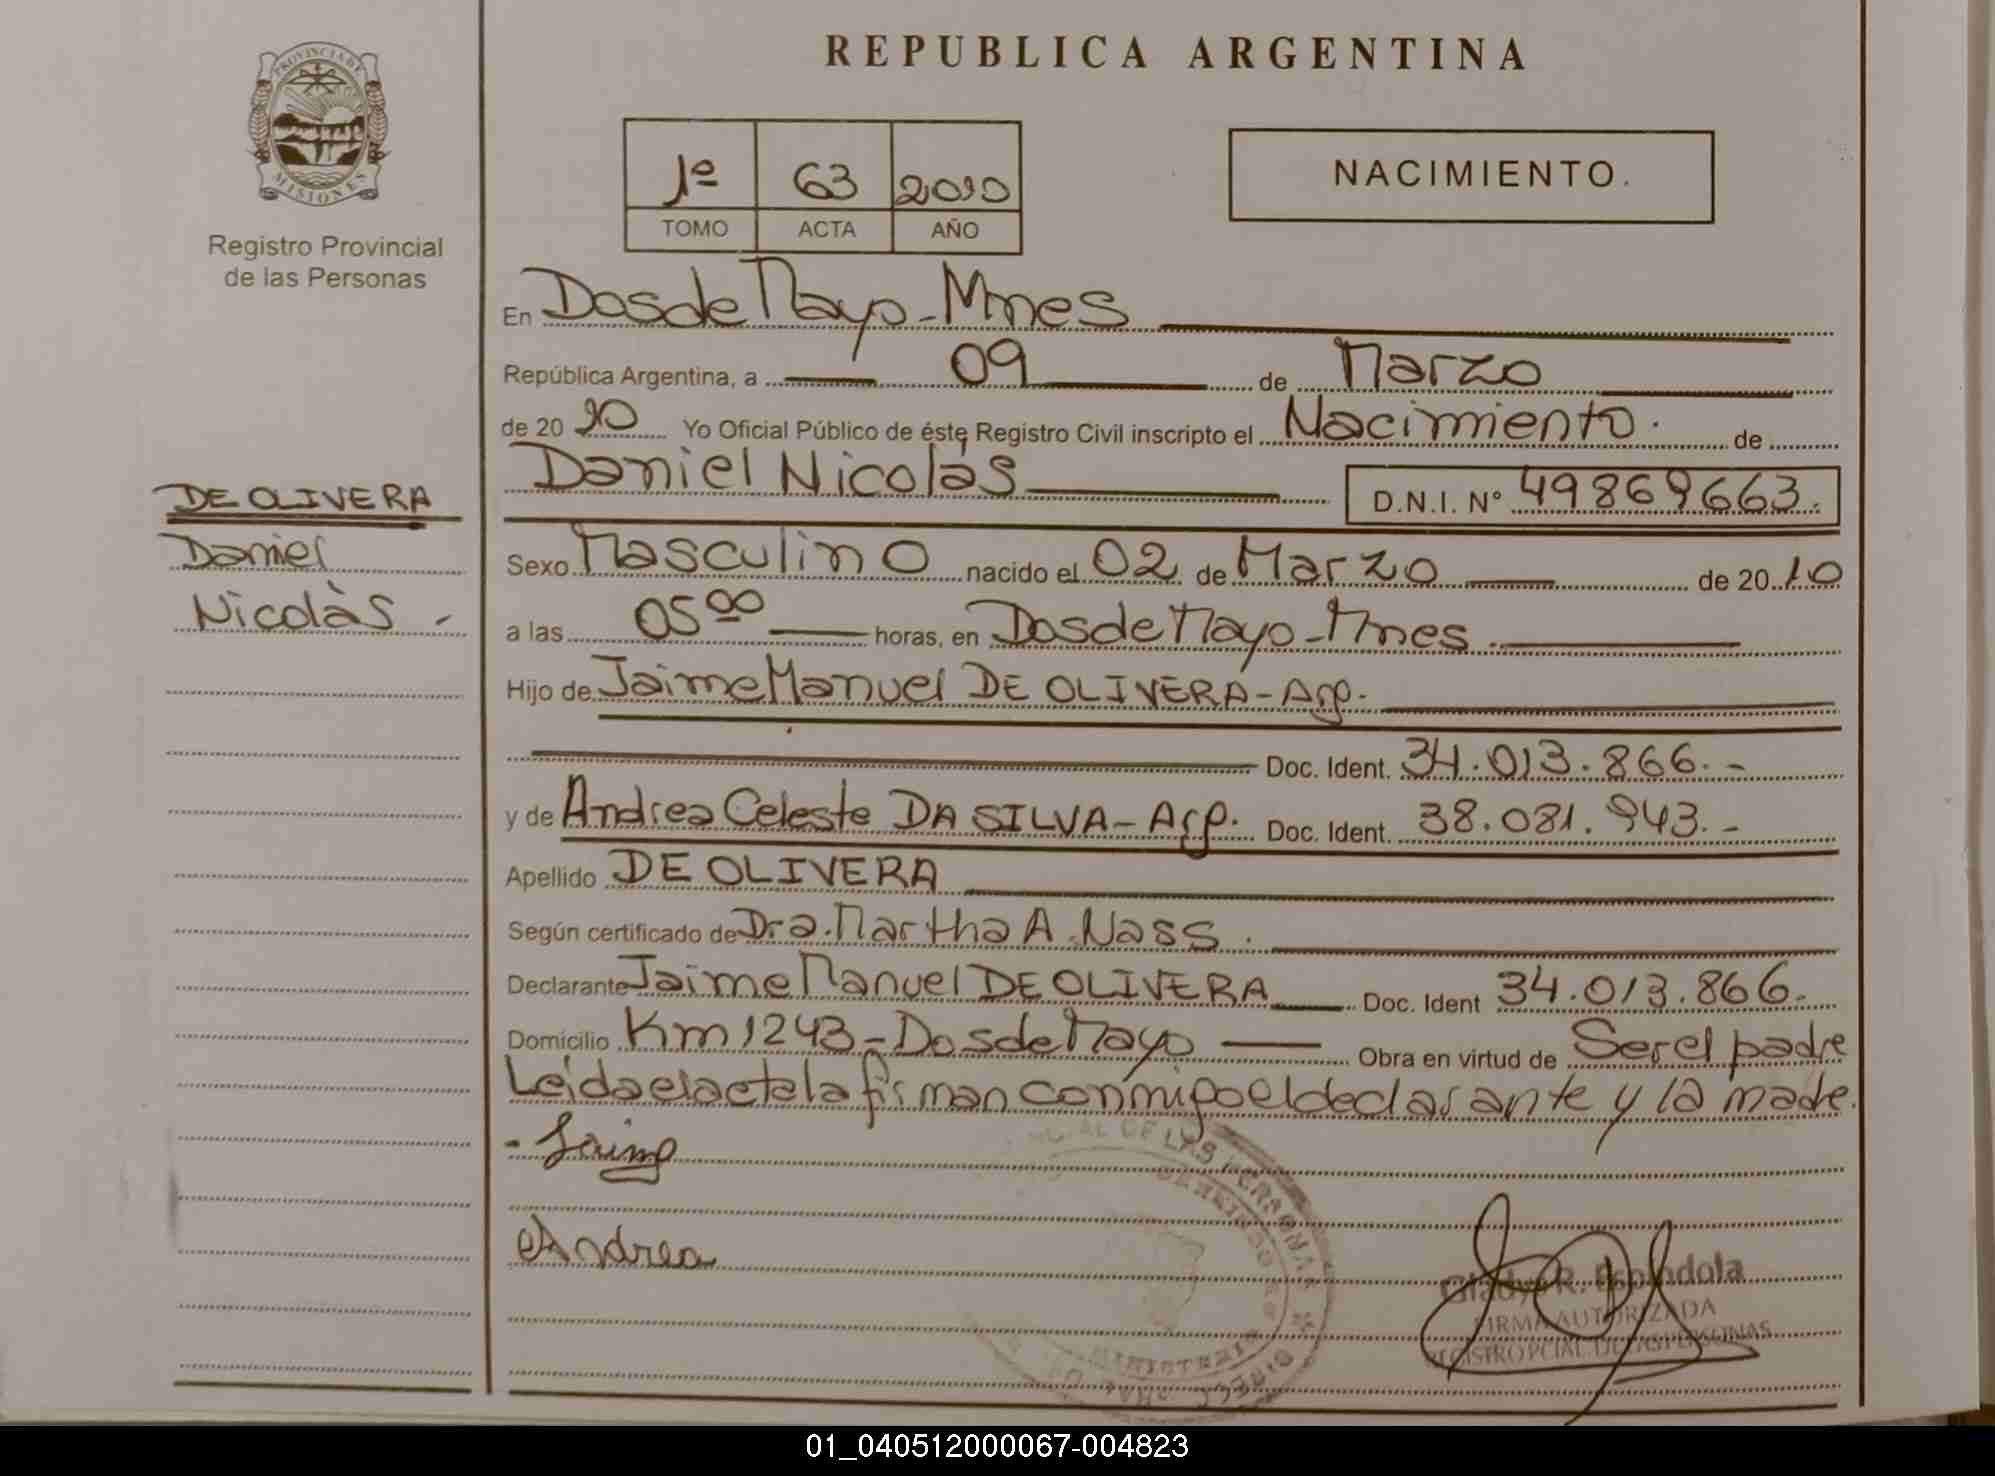 REPUBLICA ARGENTINA
PROVINCIA DE
MISIONES
Registro Provincial
de las Personas
1º 63 2010
TOMO ACTA AÑO
NACIMIENTO.
En Dos de Mayo - Mnes
República Argentina, a 09 de Marzo
de 20 10 Yo Oficial Público de éste Registro Civil inscripto el Nacimiento. de
Daniel Nicolás D.N.I. Nº 49869663.
DE OLIVERA
Daniel
Nicolàs -
Sexo Masculino nacido el 02 de Marzo de 20 10
a las 05 00 horas, en Dos de Mayo - Mnes.
Hijo de Jaime Manuel DE OLIVERA - Arg.
Doc. Ident. 34.013.866.-
y de Andrea Celeste DA SILVA - Arg. Doc. Ident. 38.081.943.-
Apellido DE OLIVERA
Según certificado de Dra. Martha A. Nass.
Declarante Jaime Manuel DE OLIVERA Doc. Ident 34.013.866.
Domicilio Km 1243 - Dos de Mayo Obra en virtud de Ser el padre
Leida el acta la firman conmigo el declarante y la madre.
- Jaime
Andrea
Gladys R. Espindola
FIRMA AUTORIZADA
REGISTRO PCIAL. DE LAS PERSONAS
01_040512000067-004823